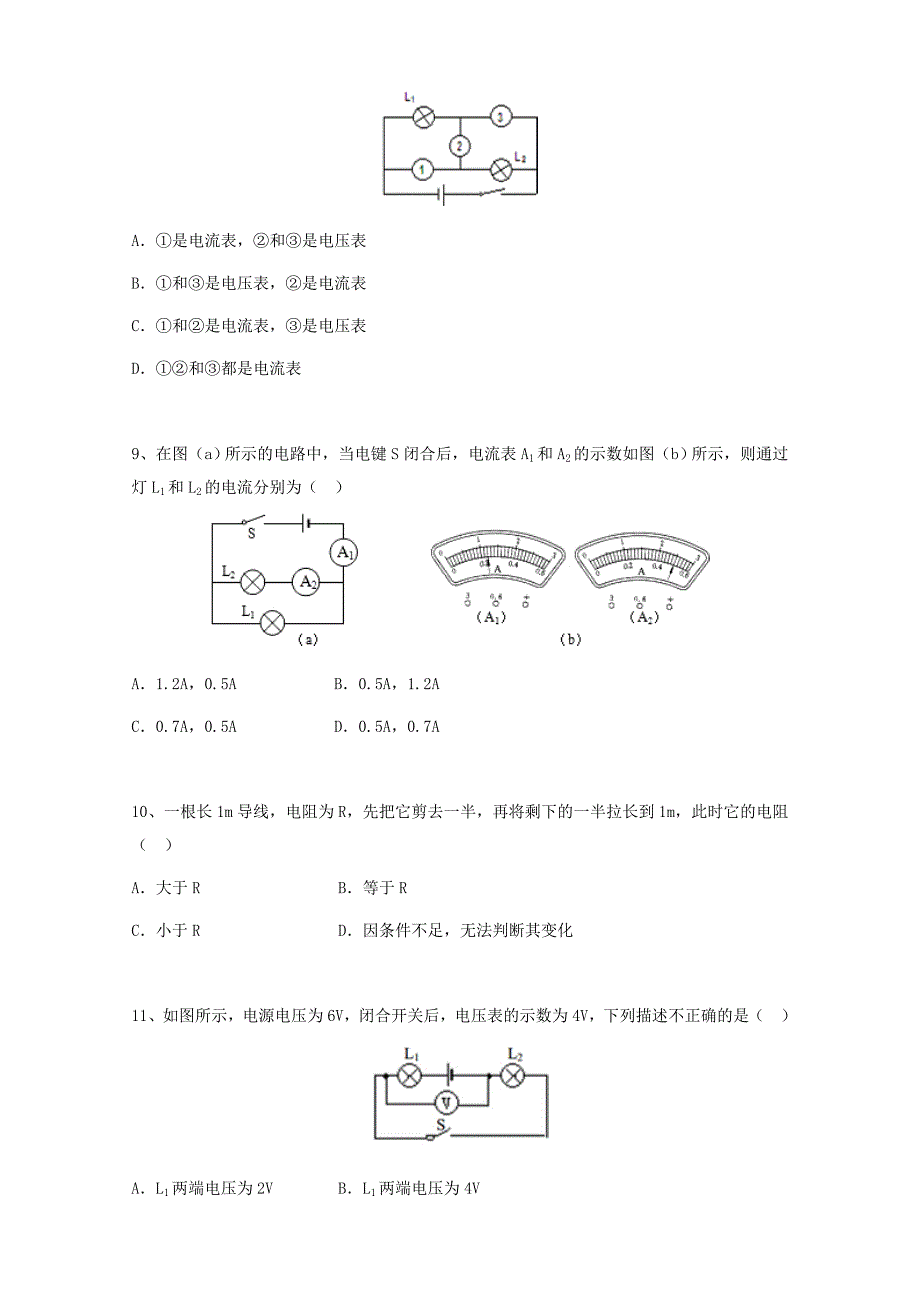 L₁
3
2
1
L₂
A．①是电流表，②和③是电压表
B．①和③是电压表，②是电流表
C．①和②是电流表，③是电压表
D．①②和③都是电流表
9、在图（a）所示的电路中，当电键S闭合后，电流表A₁和A₂的示数如图（b）所示，则通过
灯L₁和L₂的电流分别为（ ）
S
A₁
L₂
A₂
L₁
（a）
0 1 2 3
0 0.2 0.4 0.6
A
3 0.6 +
（A₁）
0 1 2 3
0 0.2 0.4 0.6
A
3 0.6 +
（A₂）
（b）
A．1.2A，0.5A B．0.5A，1.2A
C．0.7A，0.5A D．0.5A，0.7A
10、一根长1m导线，电阻为R，先把它剪去一半，再将剩下的一半拉长到1m，此时它的电阻
（ ）
A．大于R B．等于R
C．小于R D．因条件不足，无法判断其变化
11、如图所示，电源电压为6V，闭合开关后，电压表的示数为4V，下列描述不正确的是（ ）
L₁ L₂
V
S
A．L₁两端电压为2V B．L₁两端电压为4V